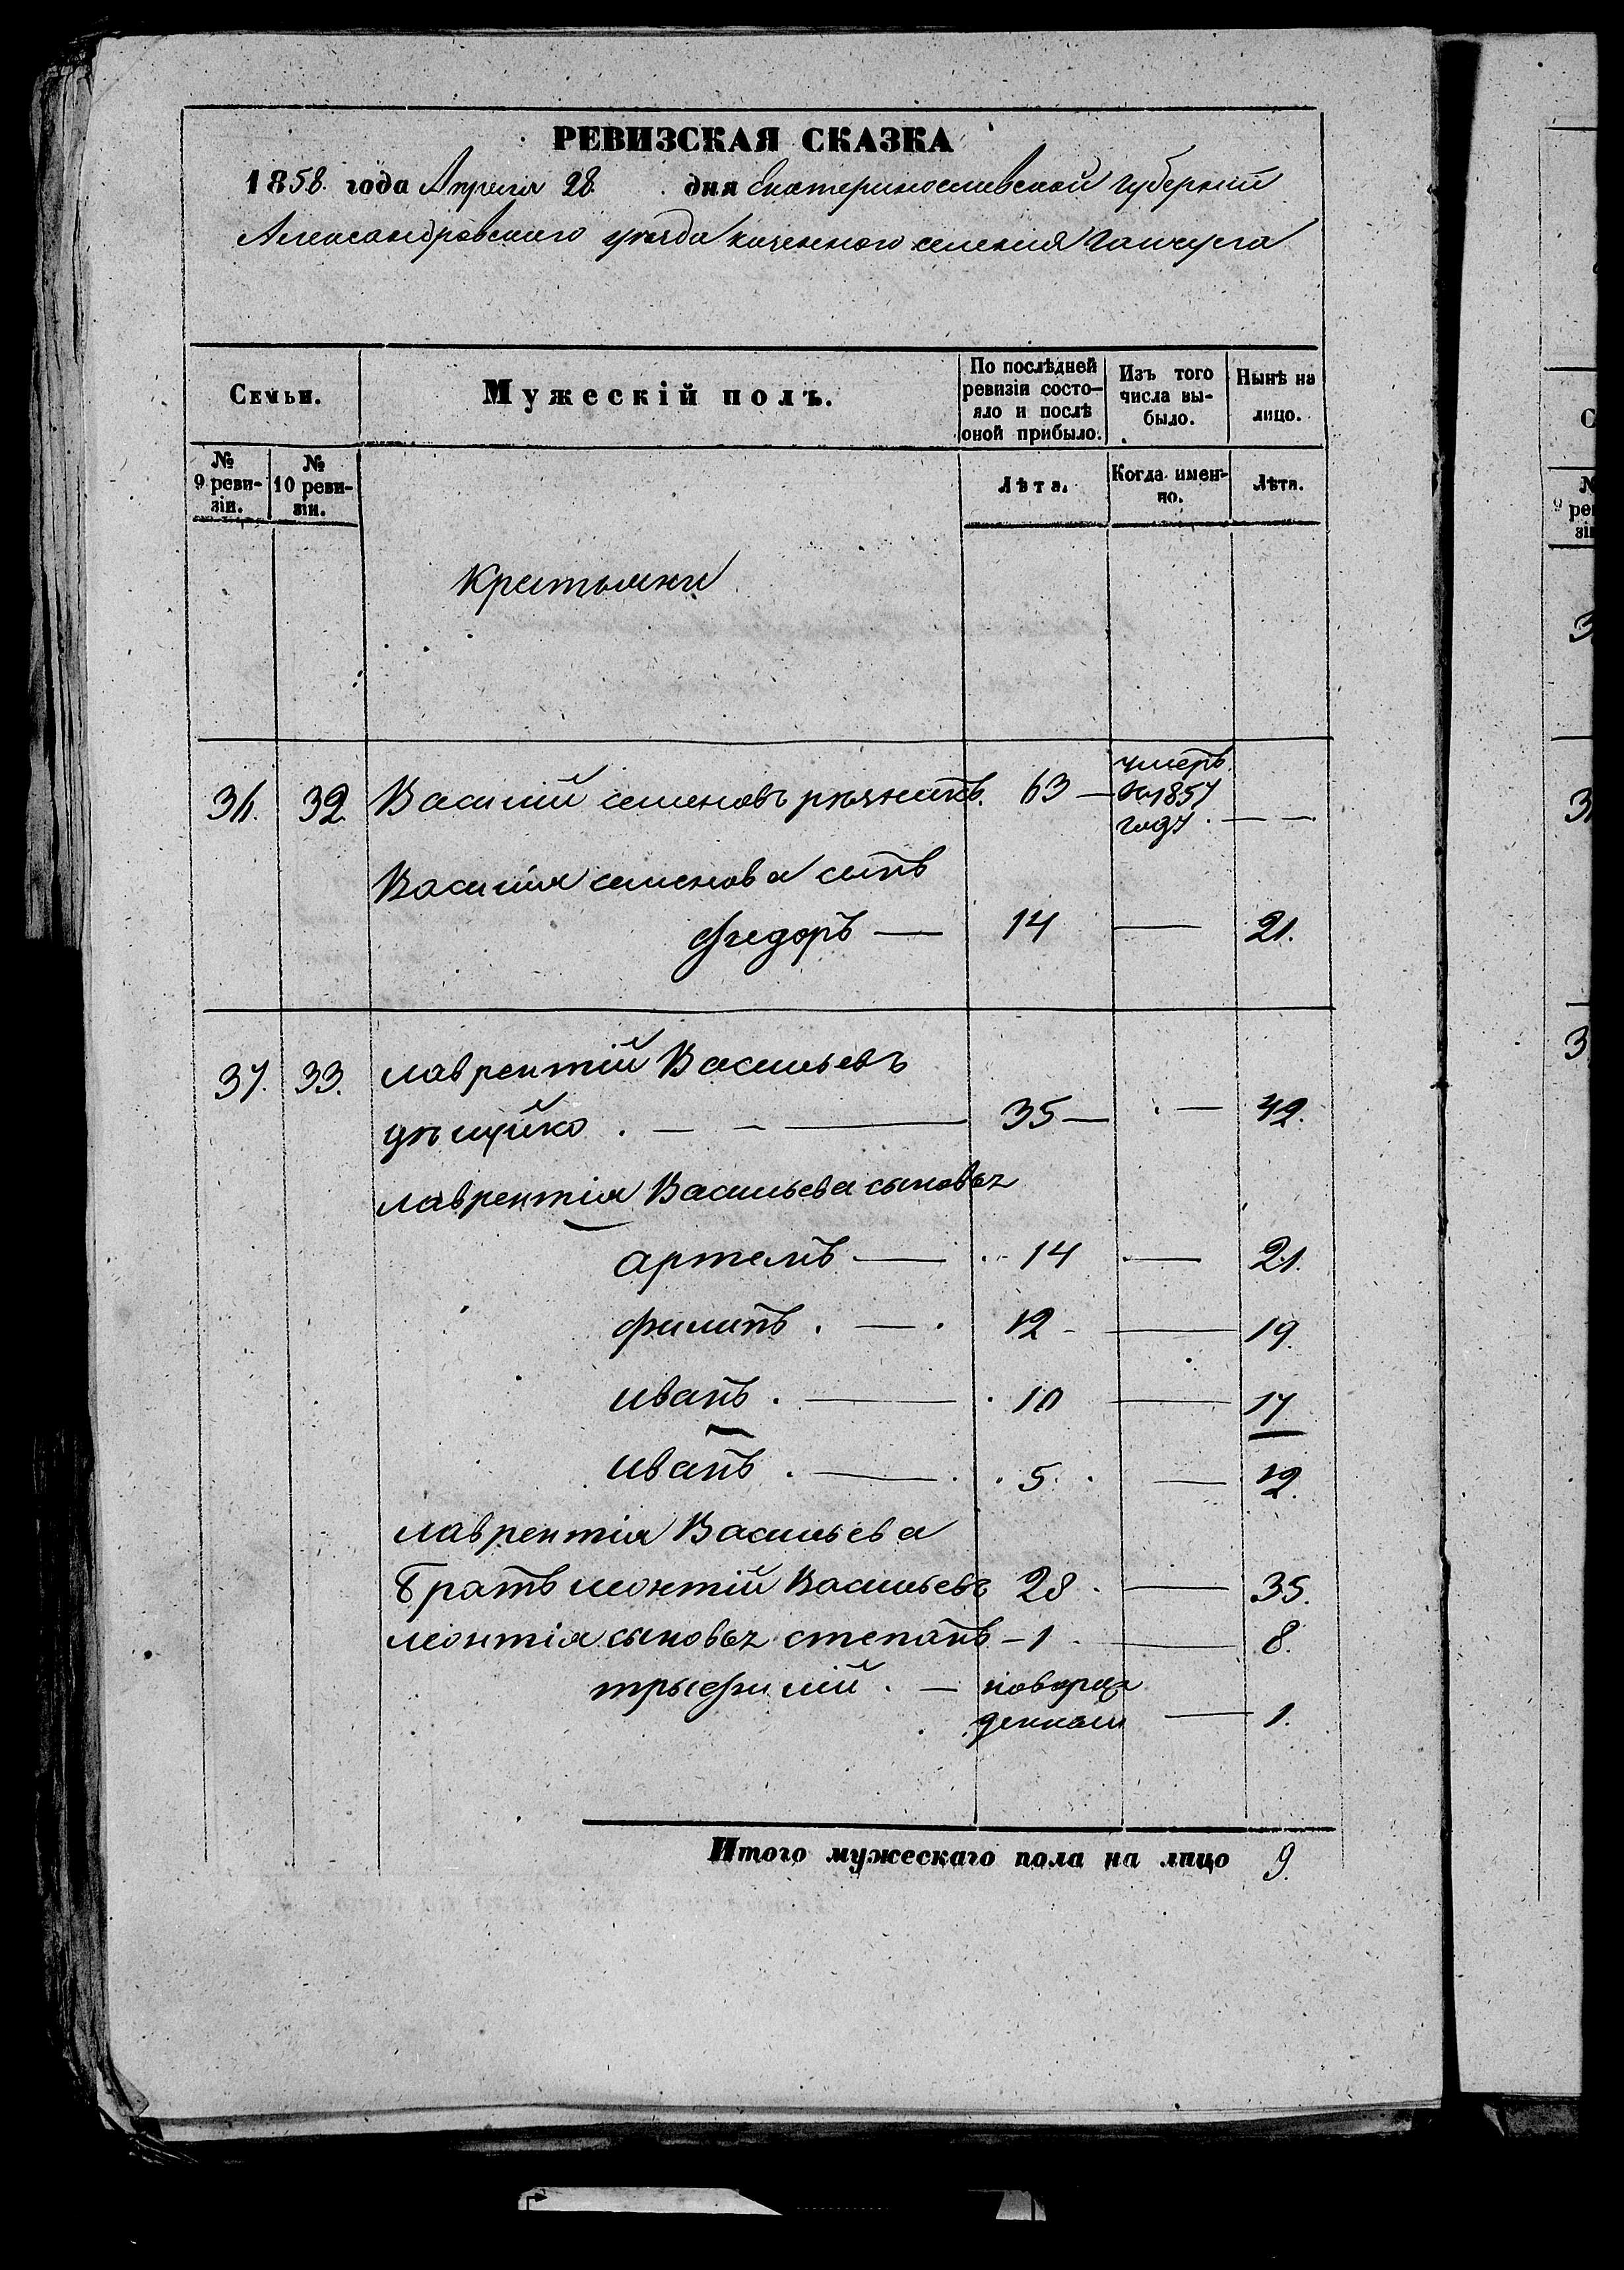 РЕВИЗСКАЯ СКАЗКА
1858. года Апреля 28 дня Екатеринославской губернии
Александровского уезда казенного селения Гайчула
Семьи.
Мужескій полъ.
По послѣдней ревизіи состо-
яло и послѣ
оной прибыло.
Изъ того
числа вы-
было.
Нынѣ на
лицо.
№
9 реви-
зіи.
№
10 реви-
зіи.
Лѣта.
Когда имен-
но.
Лѣта.
Крстьяни
36. 32 Василий семеновъ 63 — умеръ
1857
году — —
Василия семенова сынъ
Фиедоръ — 14 — 21.
37. 33. лаврентій Васильевъ
35 — — 42.
лаврентія Васильева сыновьz
артемъ — 14 — 21.
филипъ . — . 12 — 19.
иванъ . — 10 — 17
иванъ . — 5 — 12.
лаврентія Васильева
братъ леонтій Васильевъ 28 — 35.
леонтія сыновьz степанъ — 1 — 8.
трыфилій . — новораz
денном — 1.
Итого мужескаго пола на лицо 9.
№
9 реви-
зіи